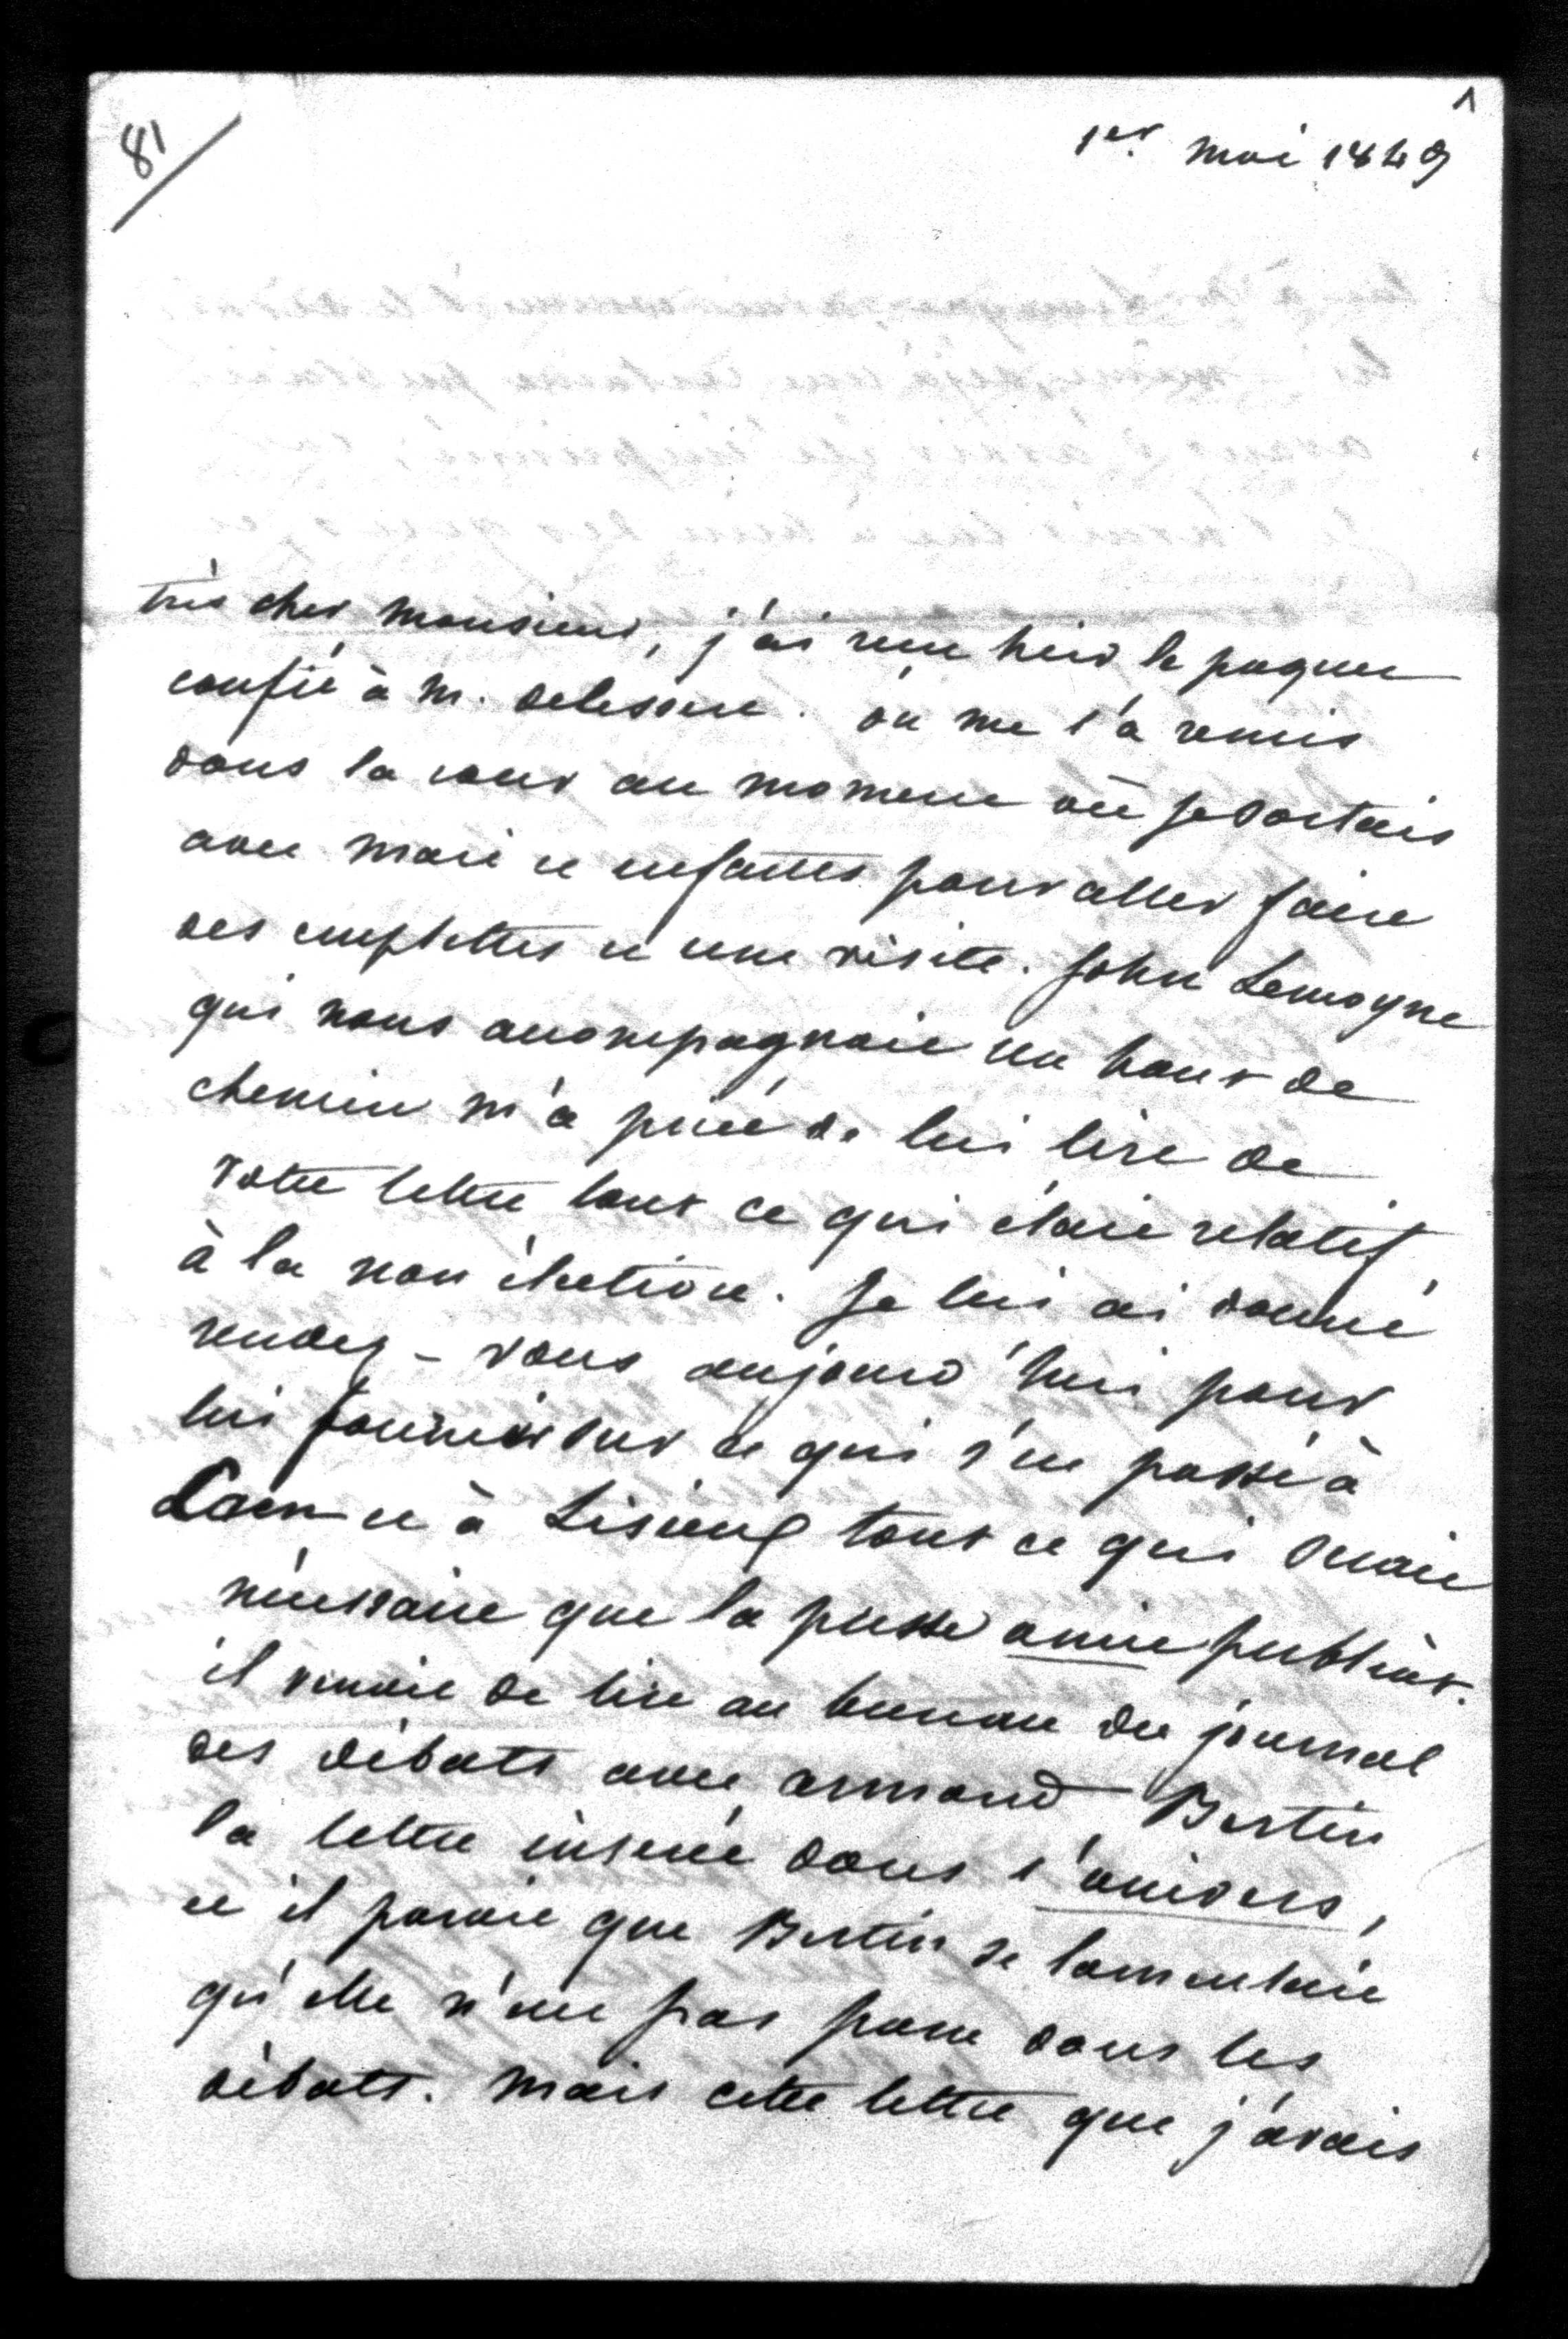 81
1
1er mai 1849
très cher monsieur, j'ai reçu hier le paquet
confié à M. Delessert. on me l'a remis
dans la cour au moment où je sortais
avec mari et enfants pour aller faire
des emplettes et une visite. John Lemoyne
qui nous accompagnait un bout de
chemin m'a prié de lui lire de
votre lettre tout ce qui était relatif
à la non élection. Je lui ai donné
rendez-vous aujourd'hui pour
lui fournir sur ce qui s'est passé à
Caen et à Lisieux tout ce qui serait
nécessaire que la presse amie publiât.
il venait de lire au bureau du journal
des débats avec armand Bertin
la lettre insérée dans l'univers,
et il parait que Bertin se lamentait
qu'elle n'eut pas paru dans les
débats. Mais cette lettre que j'avais